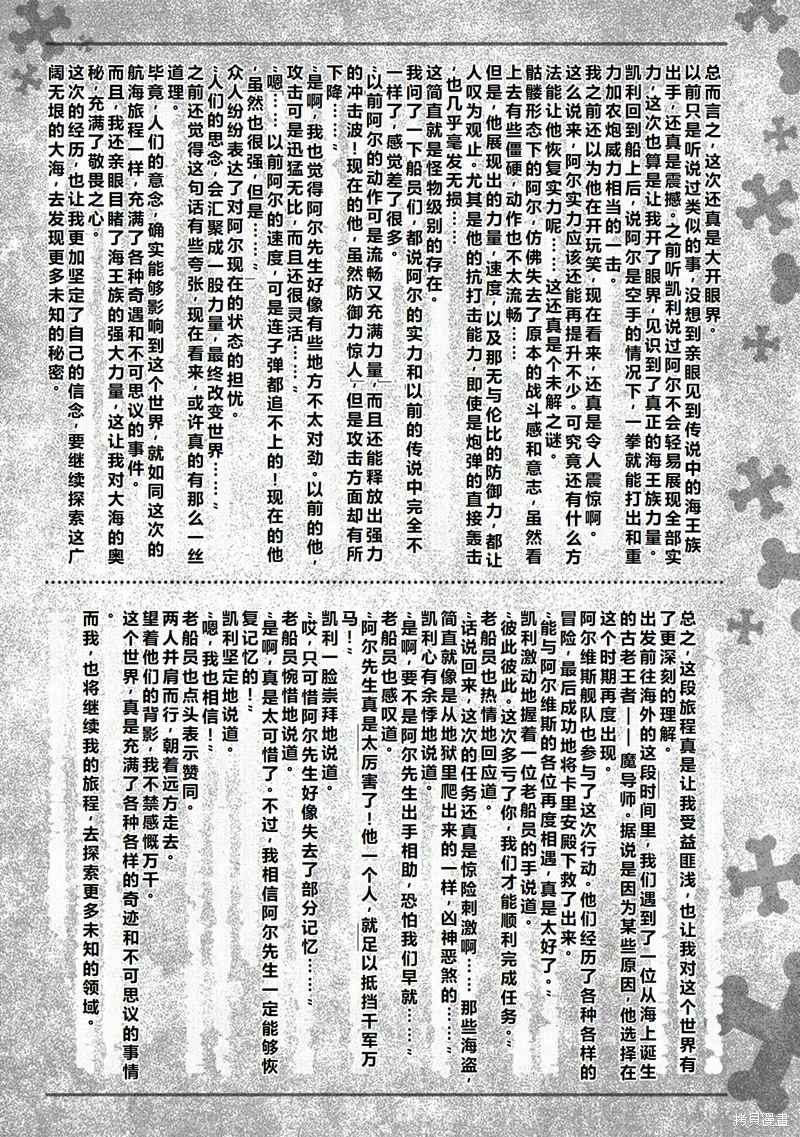 总而言之，这次还真是大开眼界。
以前只是听说过类似的事，没想到亲眼见到传说中的海王族
出手，还真是震撼。之前听凯利说过阿尔不会轻易展现全部实
力，这次也算是让我开了眼界，见识到了真正的海王族力量。
凯利回到船上后，说阿尔是空手的情况下，一拳就能打出和重
力加农炮威力相当的一击。
我之前还以为他在开玩笑，现在看来，还真是令人震惊啊。
这么说来，阿尔实力应该还能再提升不少。可究竟还有什么方
法能让他恢复实力呢……这还真是个未解之谜。
骷髅形态下的阿尔，仿佛失去了原本的战斗感和意志，虽然看
上去有些僵硬，动作也不太流畅……
但是，他展现出的力量，速度，以及那无与伦比的防御力，都让
人叹为观止。尤其是他的抗打击能力，即使是炮弹的直接轰击
，也几乎毫发无损……
这简直就是怪物级别的存在。
我问了一下船员们，都说阿尔的实力和以前的传说中完全不
一样了，感觉差了很多。
“以前阿尔的动作可是流畅又充满力量，而且还能释放出强力
的冲击波！现在的他，虽然防御力惊人，但是攻击方面却有所
下降……”
“是啊，我也觉得阿尔先生好像有些地方不太对劲。以前的他，
攻击可是迅猛无比，而且还很灵活……”
“嗯……以前阿尔的速度，可是连子弹都追不上的！现在的他
，虽然也很强，但是……”
众人纷纷表达了对阿尔现在的状态的担忧。
“人们的思念，会汇聚成一股力量，最终改变世界……”
之前还觉得这句话有些夸张，现在看来，或许真的有那么一丝
道理。
毕竟，人们的意念，确实能够影响到这个世界，就如同这次的
航海旅程一样，充满了各种奇遇和不可思议的事件。
而且，我还亲眼目睹了海王族的强大力量，这让我对大海的奥
秘，充满了敬畏之心。
这次的经历，也让我更加坚定了自己的信念，要继续探索这广
阔无垠的大海，去发现更多未知的秘密。
总之，这段旅程真是让我受益匪浅，也让我对这个世界有
了更深刻的理解。
出发前往海外的这段时间里，我们遇到了一位从海上诞生
的古老王者——魔导师。据说是因为某些原因，他选择在
这个时期再度出现。
阿尔维斯舰队也参与了这次行动。他们经历了各种各样的
冒险，最后成功地将卡里安殿下救了出来。
“能与阿尔维斯的各位再度相遇，真是太好了。”
凯利激动地握着一位老船员的手说道。
“彼此彼此。这次多亏了你，我们才能顺利完成任务。”
老船员也热情地回应道。
“话说回来，这次的任务还真是惊险刺激啊……那些海盗，
简直就像是从地狱里爬出来的一样，凶神恶煞的……”
凯利心有余悸地说道。
“是啊，要不是阿尔先生出手相助，恐怕我们早就……”
老船员也感叹道。
“阿尔先生真是太厉害了！他一个人，就足以抵挡千军万
马！”
凯利一脸崇拜地说道。
“哎，只可惜阿尔先生好像失去了部分记忆……”
老船员惋惜地说道。
“是啊，真是太可惜了。不过，我相信阿尔先生一定能够恢
复记忆的！”
凯利坚定地说道。
“嗯，我也相信！”
老船员也点头表示赞同。
两人并肩而行，朝着远方走去。
望着他们的背影，我不禁感慨万千。
这个世界，真是充满了各种各样的奇迹和不可思议的事情
。
而我，也将继续我的旅程，去探索更多未知的领域。
拷貝漫畫